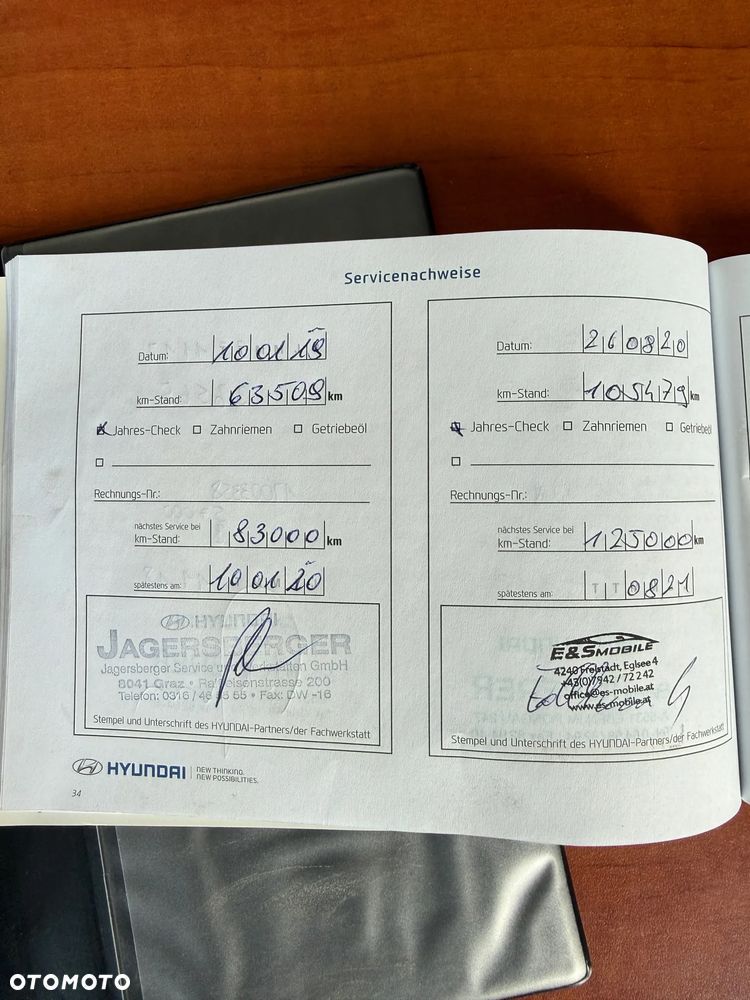 Servicenachweise
Datum: 10 01 19
km-Stand: 63509 km
Jahres-Check Zahnriemen Getriebeöl
Rechnungs-Nr.:
nächstes Service bei
km-Stand: 83000 km
spätestens am: 10 01 20
HYUNDAI
JAGERSBERGER
Jagersberger Service GmbH
8041 Graz • Raiffeisenstrasse 200
Telefon: 0316 / Fax: DW -16
Stempel und Unterschrift des HYUNDAI-Partners/der Fachwerkstatt
Datum: 26 08 20
km-Stand: 105479 km
Jahres-Check Zahnriemen Getriebeöl
Rechnungs-Nr.:
nächstes Service bei
km-Stand: 125000 km
spätestens am: T T 08 21
E&SMOBILE
4240 Freistadt, Eglsee 4
+43(0)7942 / 72 2 42
office@es-mobile.at
www.es-mobile.at
Stempel und Unterschrift des HYUNDAI-Partners/der Fachwerkstatt
HYUNDAI NEW THINKING.
NEW POSSIBILITIES.
34
OTOMOTO